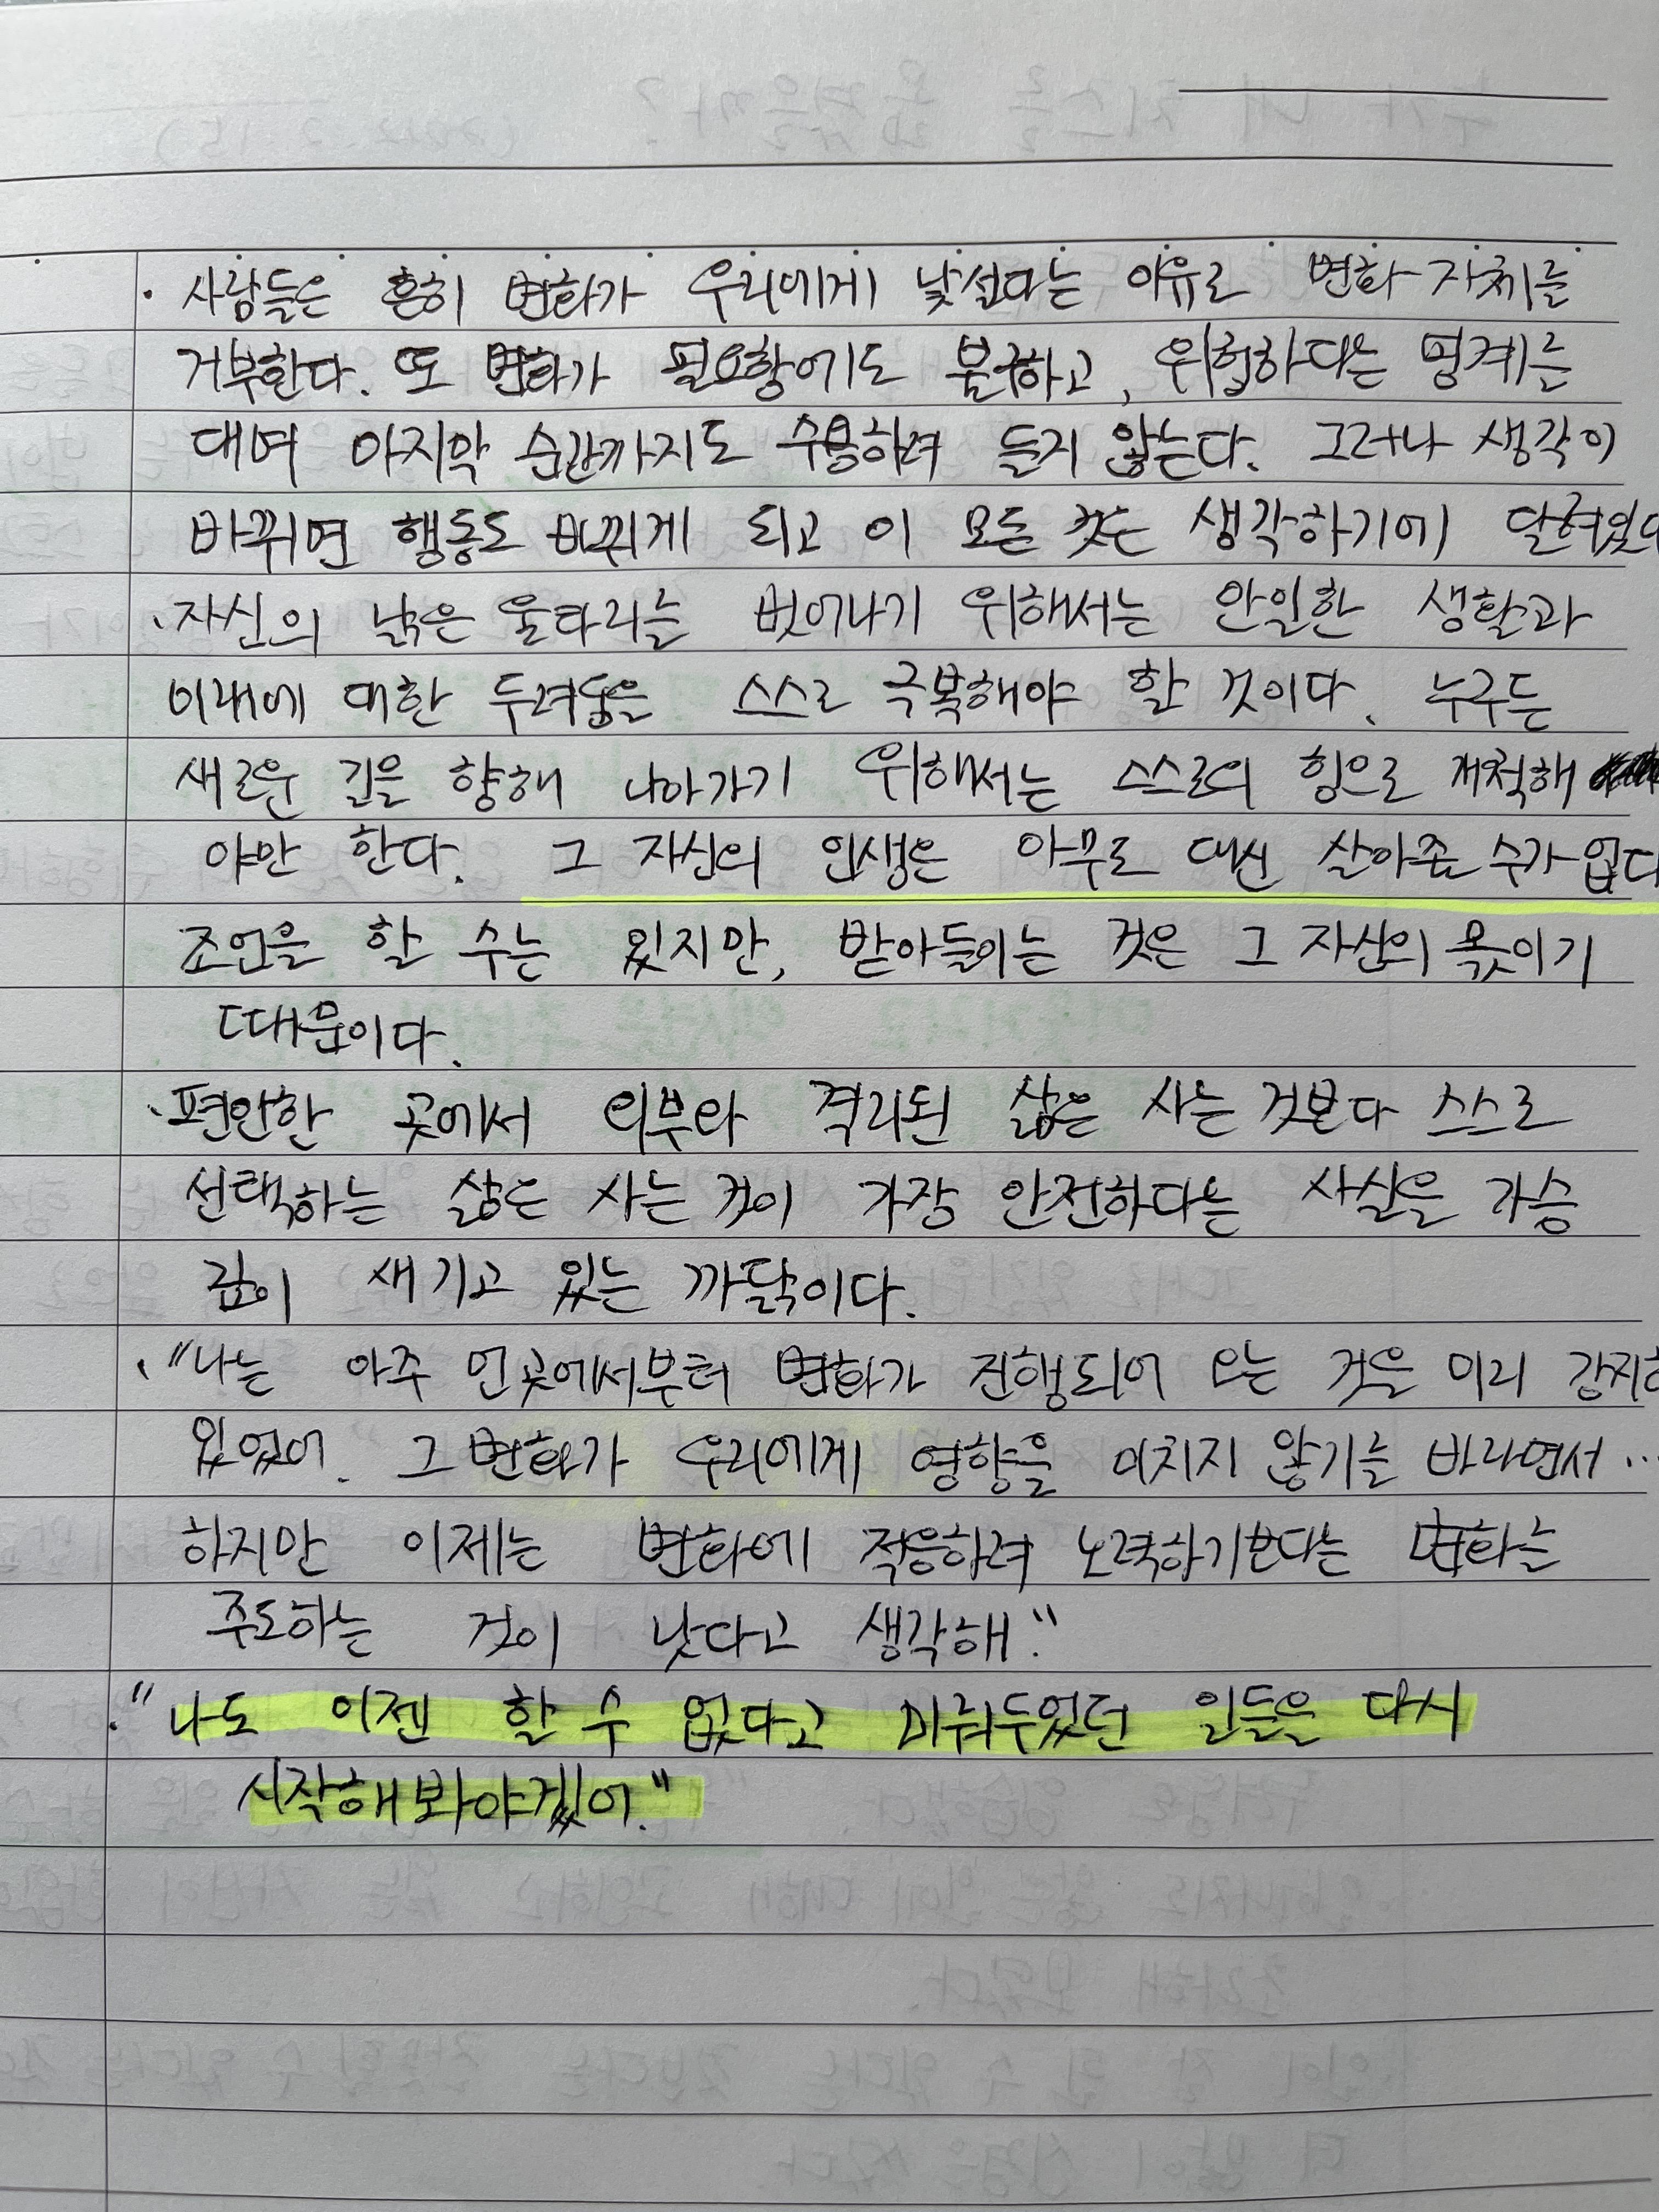 · 사람들은 흔히 변화가 우리에게 낯설다는 이유로 변화 자체를
거부한다. 또 변화가 필요함에도 불구하고, 위험하다는 핑계를
대며 마지막 순간까지도 수용하려 들지 않는다. 그러나 생각이
바뀌면 행동도 바뀌게 되고 이 모든 것은 생각하기에 달려있다
· 자신의 낡은 울타리를 벗어나기 위해서는 안일한 생활과
미래에 대한 두려움을 스스로 극복해야 할 것이다. 누구든
새로운 길을 향해 나아가기 위해서는 스스로의 힘으로 개척해
야만 한다. 그 자신의 인생은 아무도 대신 살아줄 수가 없다
조언을 할 수는 있지만, 받아들이는 것은 그 자신의 몫이기
때문이다.
· 편안한 곳에서 외부와 격리된 삶을 사는 것보다 스스로
선택하는 삶을 사는 것이 가장 안전하다는 사실을 가슴
깊이 새기고 있는 까닭이다.
· "나는 아주 먼 곳에서부터 변화가 진행되어 오는 것을 미리 감지하
있었어. 그 변화가 우리에게 영향을 미치지 않기를 바라면서…
하지만 이제는 변화에 적응하려 노력하기보다는 변화를
주도하는 것이 낫다고 생각해."
· "나도 이젠 할 수 없다고 미뤄두었던 일들을 다시
시작해봐야겠어."